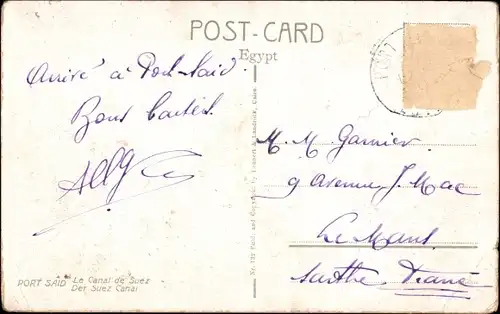 POST-CARD
Egypt
PORT
Arrivé à Port-Saïd.
Bons baisers
M. M. Garnier
9 Avenue J. Mac
Le Mans
Sarthe France
PORT SAID Le Canal de Suez
Der Suez Canal